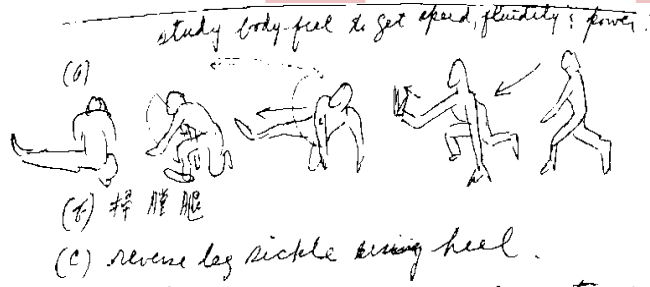 study body-feel to get speed, fluidity & power.
(a)
(b) 掃 膛 腿
(c) reverse leg sickle using heel.